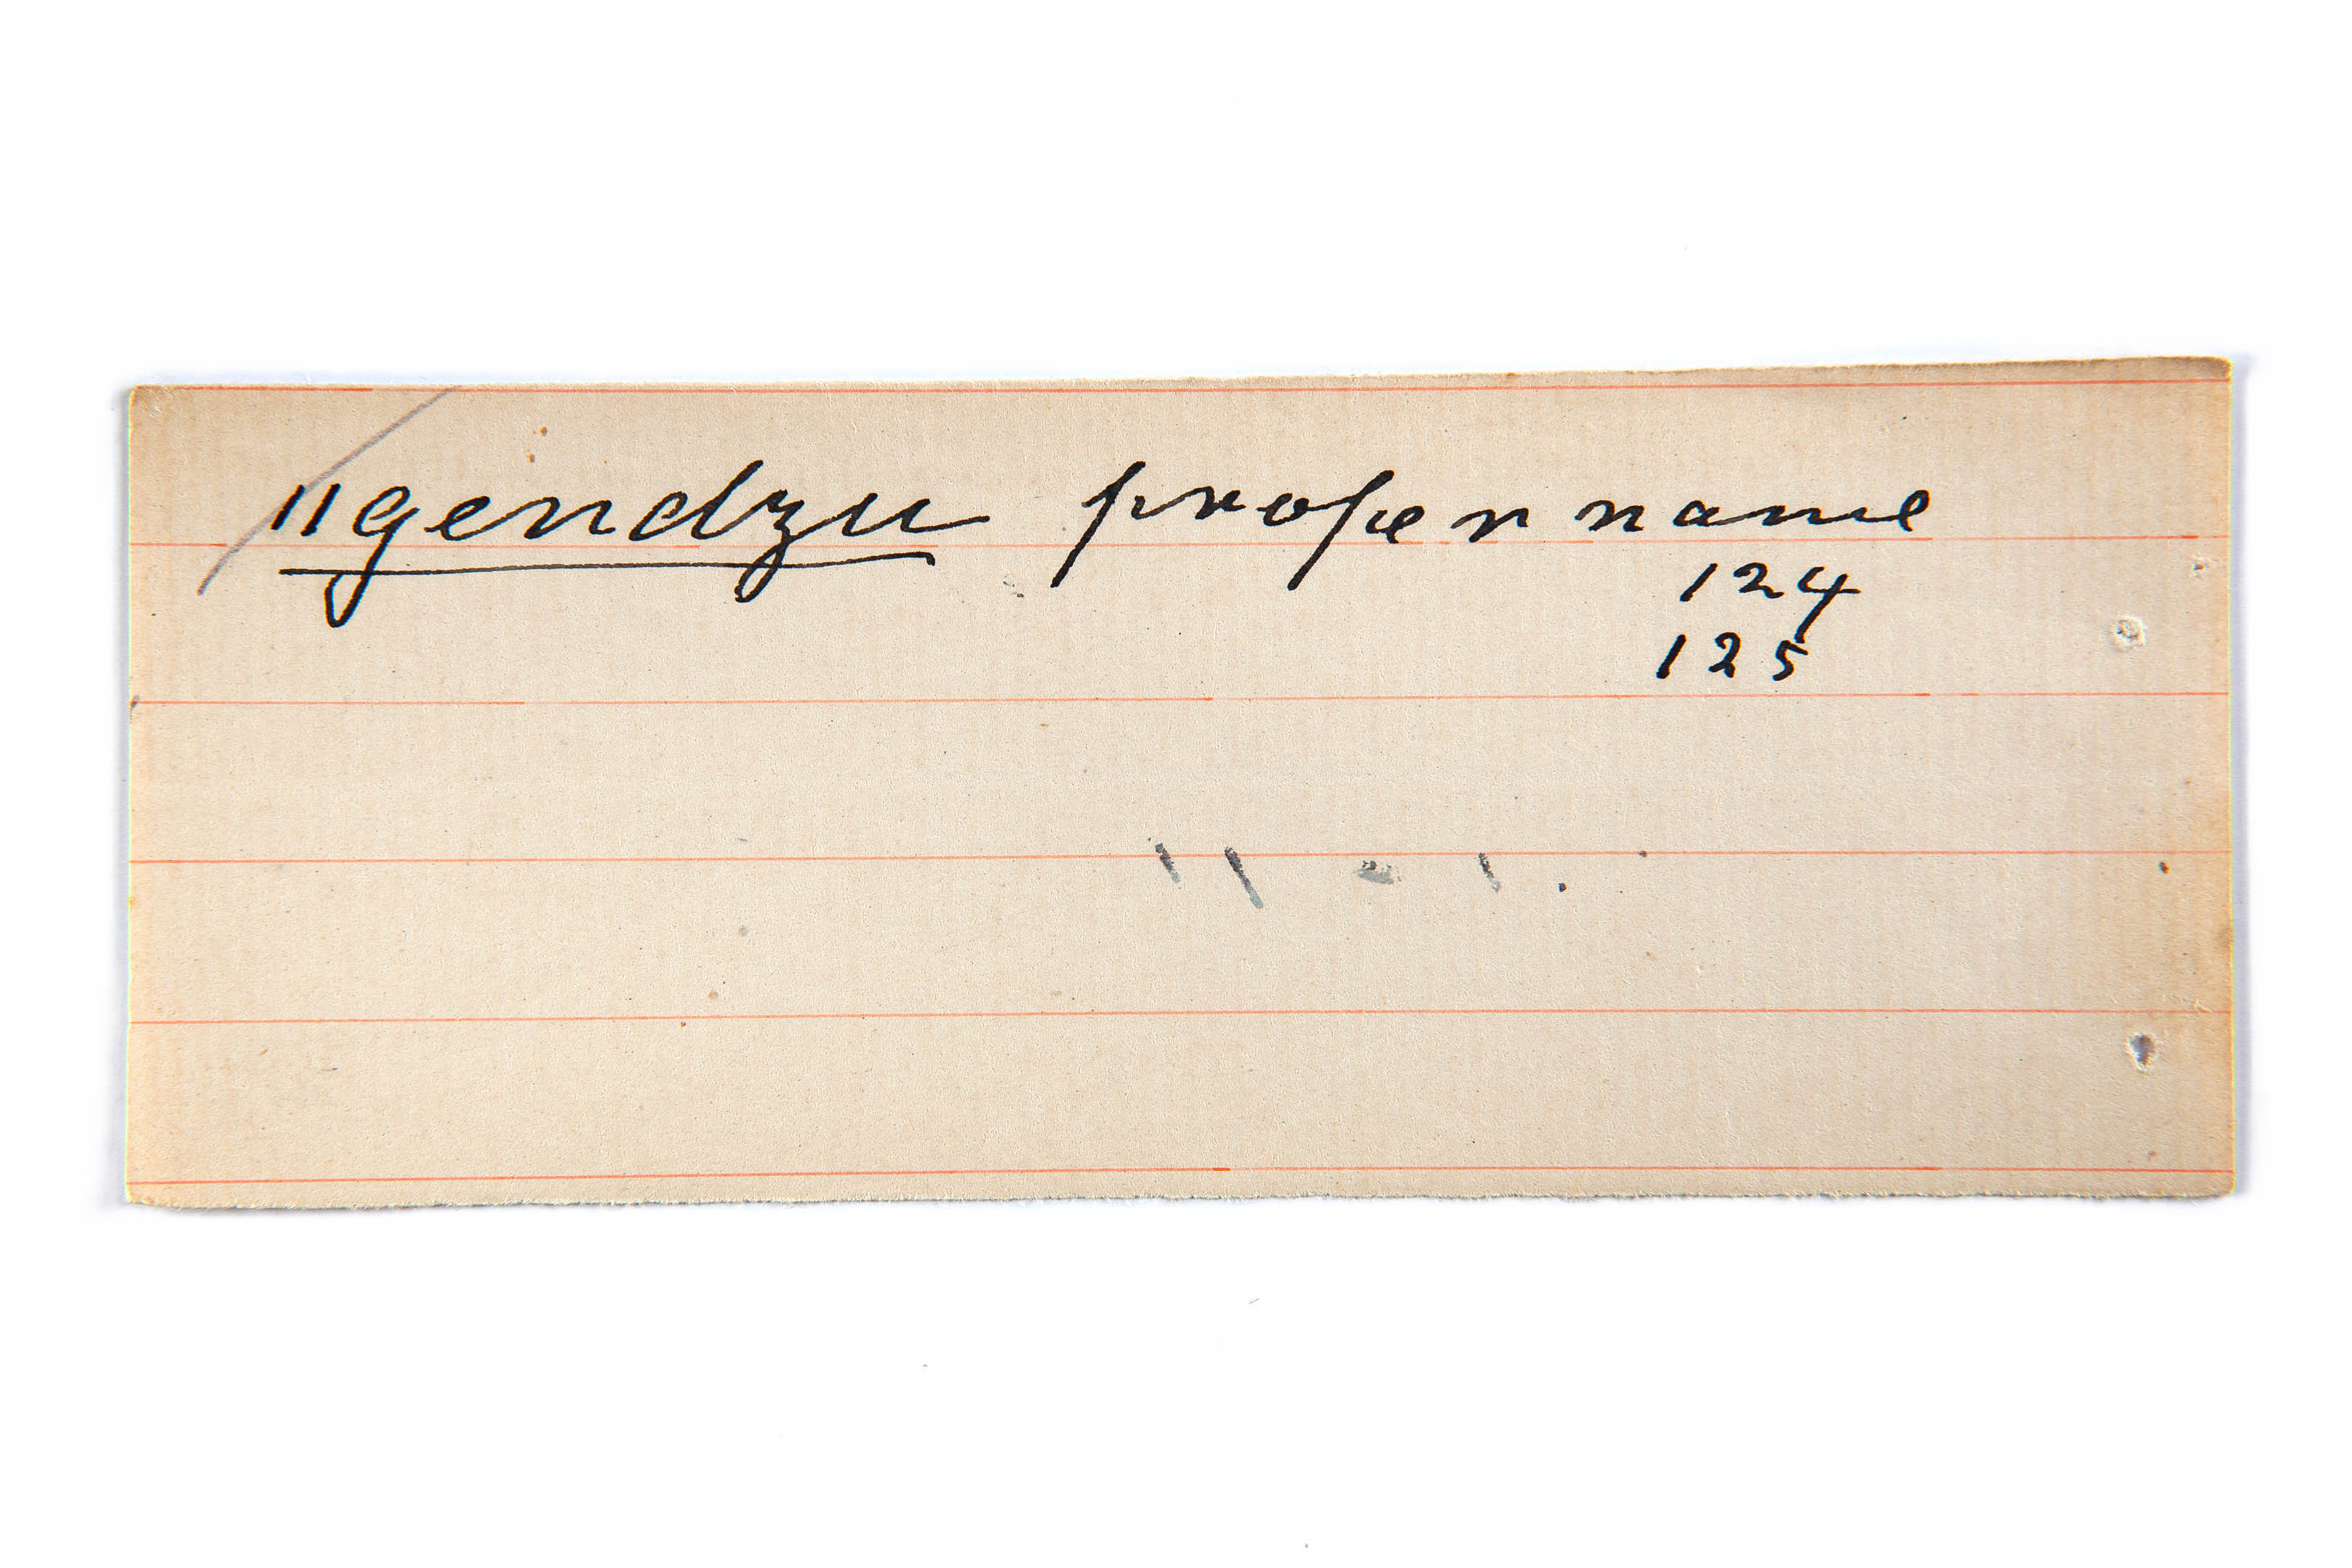 ǁgendzu proper name
124
125